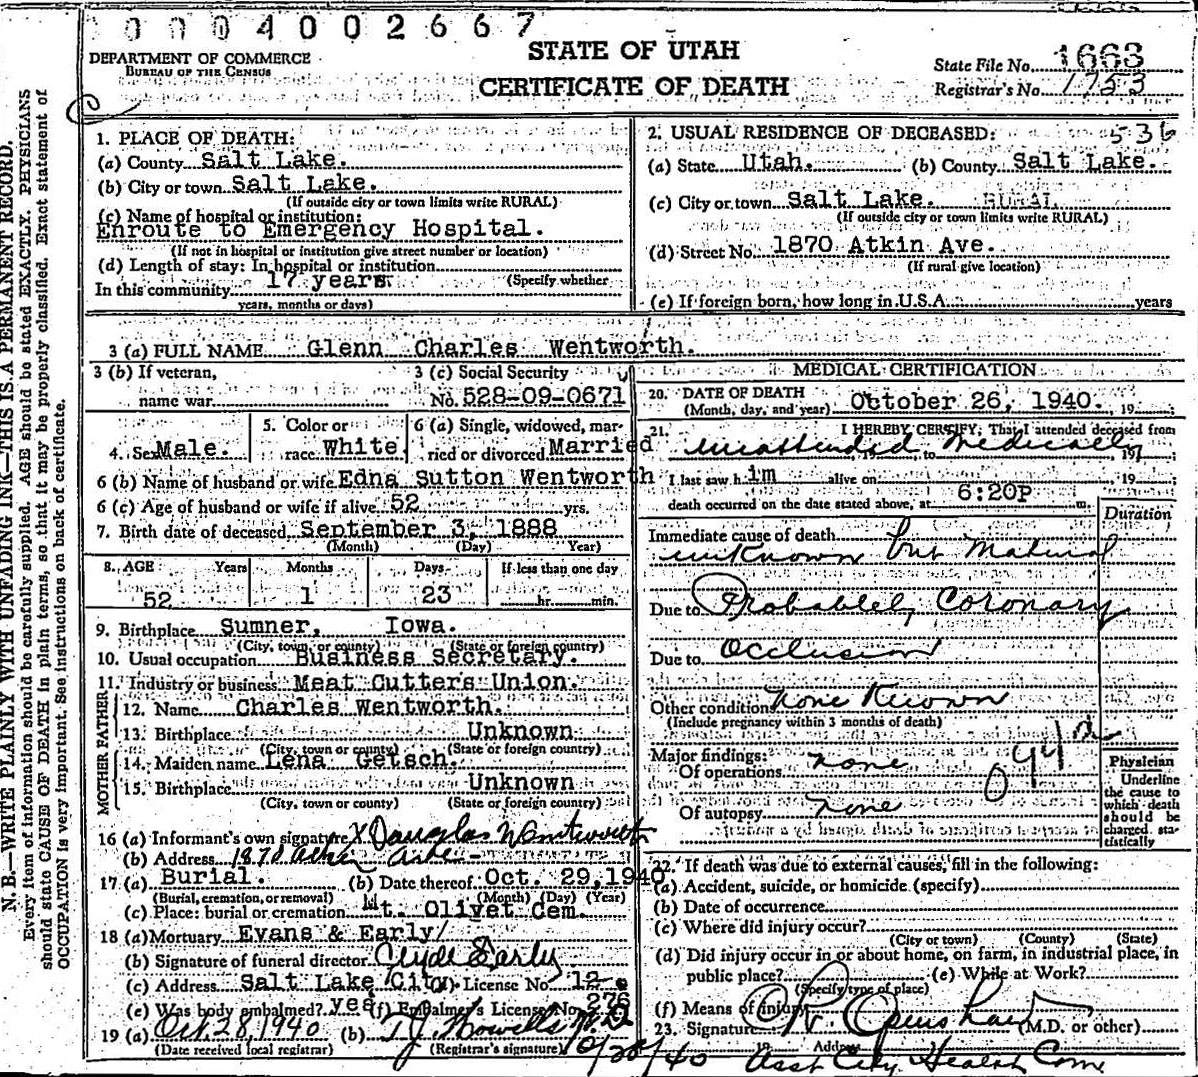 0004002667
DEPARTMENT OF COMMERCE
BUREAU OF THE CENSUS
STATE OF UTAH
CERTIFICATE OF DEATH
State File No. 1663
Registrar's No. 1753
N. B.—WRITE PLAINLY WITH UNFADING INK—THIS IS A PERMANENT RECORD.
Every item of information should be carefully supplied. AGE should be stated EXACTLY. PHYSICIANS
should state CAUSE OF DEATH in plain terms, so that it may be properly classified. Exact statement of
OCCUPATION is very important. See instructions on back of certificate.
1. PLACE OF DEATH:
(a) County Salt Lake.
(b) City or town Salt Lake.
(If outside city or town limits write RURAL)
(c) Name of hospital or institution:
Enroute to Emergency Hospital.
(If not in hospital or institution give street number or location)
(d) Length of stay: In hospital or institution
(Specify whether
In this community 17 years
years, months or days)
2. USUAL RESIDENCE OF DECEASED: 536
(a) State Utah. (b) County Salt Lake.
(c) City or town Salt Lake. RURAL
(If outside city or town limits write RURAL)
(d) Street No. 1870 Atkin Ave.
(If rural give location)
(e) If foreign born, how long in U.S.A. years
3 (a) FULL NAME Glenn Charles Wentworth.
3 (b) If veteran,
name war
3 (c) Social Security
No. 528-09-0671
4. Sex Male.
5. Color or
race White
6 (a) Single, widowed, mar-
ried or divorced Married
6 (b) Name of husband or wife Edna Sutton Wentworth
6 (c) Age of husband or wife if alive 52 yrs.
7. Birth date of deceased September 3, 1888
(Month) (Day) (Year)
8. AGE Years Months Days If less than one day
52 1 23 hr. min.
9. Birthplace Sumner, Iowa.
(City, town, or county) (State or foreign country)
10. Usual occupation Business Secretary.
11. Industry or business Meat Cutters Union.
FATHER
12. Name Charles Wentworth.
13. Birthplace Unknown
(City, town or county) (State or foreign country)
MOTHER
14. Maiden name Lena Getsch.
15. Birthplace Unknown
(City, town or county) (State or foreign country)
16 (a) Informant's own signature X Douglas Wentworth
(b) Address 1870 Atkin Ave.
17 (a) Burial. (b) Date thereof Oct. 29, 1940
(Burial, cremation, or removal) (Month) (Day) (Year)
(c) Place: burial or cremation Mt. Olivet Cem.
18 (a) Mortuary Evans & Early
(b) Signature of funeral director Clyde Early
(c) Address Salt Lake City (d) License No. 12
(e) Was body embalmed? yes (f) Embalmer's License No. 276
19 (a) Oct. 28, 1940 (b) T J Howells M D
(Date received local registrar) (Registrar's signature) 10/28/40
MEDICAL CERTIFICATION
20. DATE OF DEATH
(Month, day, and year) October 26, 1940. 19
21. I HEREBY CERTIFY, That I attended deceased from
unattended medically
I last saw him alive on 19
death occurred on the date stated above, at 6:20P m.
Duration
Immediate cause of death
unknown but natural
Due to Probablel, Coronary
Due to Occlusion
Other condition none known
(Include pregnancy within 3 months of death)
Major findings:
Of operations none
094a
Of autopsy none
Physician
Underline
the cause to
which death
should be
charged sta-
tistically
22. If death was due to external causes, fill in the following:
(a) Accident, suicide, or homicide (specify)
(b) Date of occurrence
(c) Where did injury occur?
(City or town) (County) (State)
(d) Did injury occur in or about home, on farm, in industrial place, in
public place? (e) While at Work?
(Specify type of place)
(f) Means of injury
23. Signature Openshaw (M.D. or other)
19 Address
Asst City Health Com